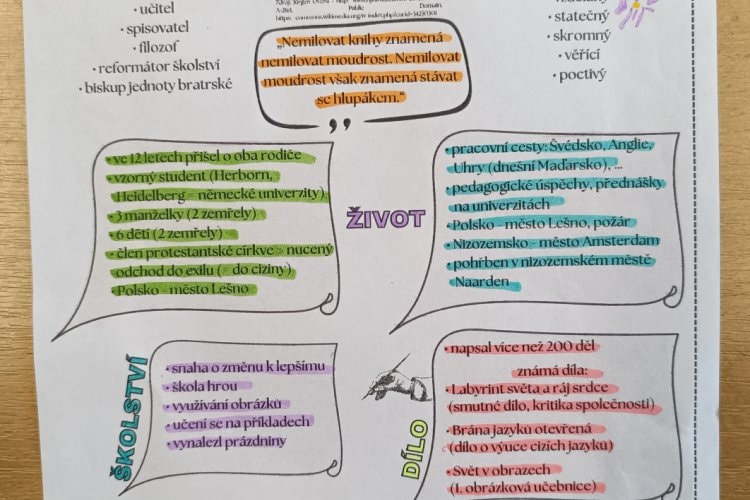 • učitel
• spisovatel
• filozof
• reformátor školství
• biskup jednoty bratrské
Public Domain,
• statečný
• skromný
• věřící
• poctivý
„Nemilovat knihy znamená
nemilovat moudrost. Nemilovat
moudrost však znamená stávat
se hlupákem."
• ve 12 letech přišel o oba rodiče
• vzorný student (Herborn,
Heidelberg = německé univerzity)
• 3 manželky (2 zemřely)
• 6 dětí (2 zemřely)
• člen protestantské církve » nucený
odchod do exilu (= do ciziny)
Polsko – město Lešno
ŽIVOT
• pracovní cesty: Švédsko, Anglie,
Uhry (dnešní Maďarsko), ...
• pedagogické úspěchy, přednášky
na univerzitách
• Polsko – město Lešno, požár
• Nizozemsko – město Amsterdam
• pohřben v nizozemském městě
Naarden
ŠKOLSTVÍ
• snaha o změnu k lepšímu
• škola hrou
• využívání obrázků
• učení se na příkladech
• vynalezl prázdniny
DÍLO
• napsal více než 200 děl
známá díla:
• Labyrint světa a ráj srdce
(smutné dílo, kritika společnosti)
• Brána jazyků otevřená
(dílo o výuce cizích jazyků)
• Svět v obrazech
(1. obrázková učebnice)